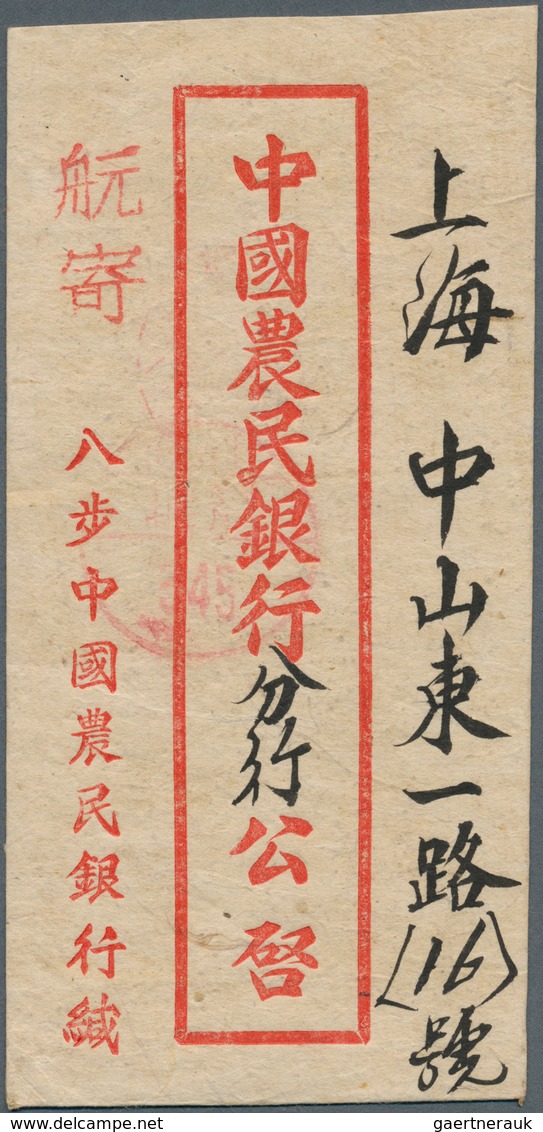 上海 中山東一路(16)號
中國農民銀行分行公啓
航寄
八步中國農民銀行緘
gaertnerauk